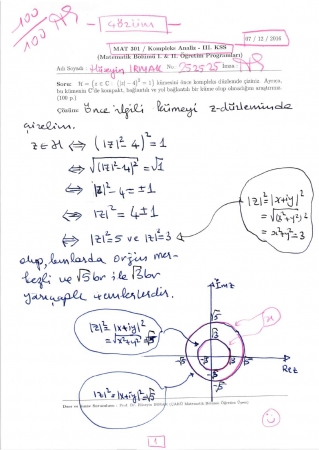 100
100
Çözüm
07 / 12 / 2016
MAT 301 / Kompleks Analiz - III. KSS
(Matematik Bölümü I. & II. Öğretim Programları)
Adı Soyadı : Hüseyin IRMAK No: 252525 İmza :
Soru: ℋ = {z ∈ ℂ : (|z| − 4)² = 1} kümesini önce kompleks düzlemde çiziniz. Ayrıca,
bu kümenin ℂ'de kompakt, bağlantılı ve yol bağlantılı bir küme olup olmadığını araştırınız.
(100 p.)
Çözüm: Önce ilgili kümeyi z-düzleminde
çizelim.
z ∈ ℋ ⇔ (|z|²-4)² = 1
⇔ √(|z|²-4)² = √1
⇔ |z|²-4 = ±1
⇔ |z|² = 4±1
⇔ |z|² = 5 ve |z|² = 3
|z|² = |x+iy|²
= √(x²+y²)²
= x²+y² = 3
olup, bunlarda orijin mer-
kezli ve √5 br ile √3 br
yarıçaplı çemberlerdir.
Imz
√5
ℋ
|z|² = |x+iy|²
-√5 -√3 √3 √5
Rez
-√3
-√5
|z|² = |x+iy|² = 5
Ders ve Şube Sorumlusu : Prof. Dr. Hüseyin IRMAK (ÇAKÜ Matematik Bölümü Öğretim Üyesi)
1